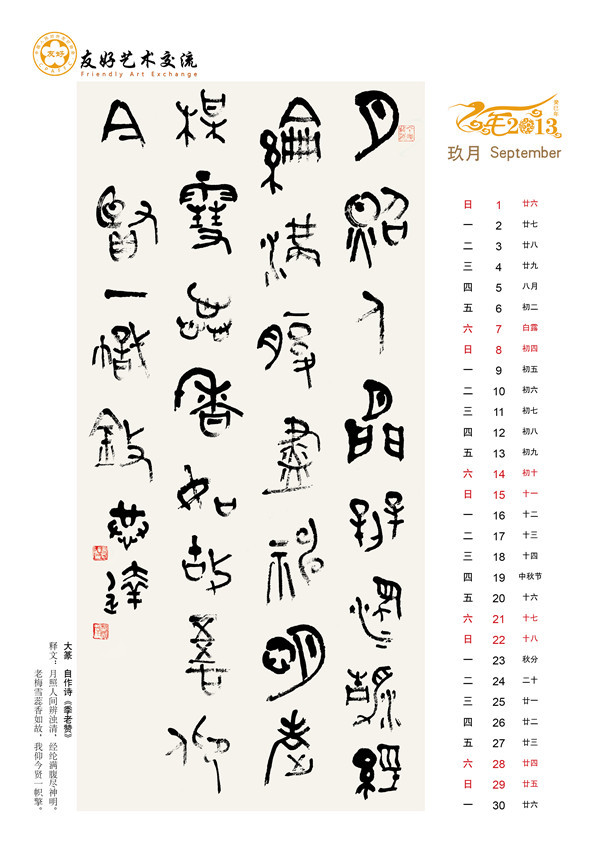 友好
友好艺术交流
Friendly Art Exchange
年2013
玖月 September
日 1 廿六
一 2 廿七
二 3 廿八
三 4 廿九
四 5 八月
五 6 初二
六 7 白露
日 8 初四
一 9 初五
二 10 初六
三 11 初七
四 12 初八
五 13 初九
六 14 初十
日 15 十一
一 16 十二
二 17 十三
三 18 十四
四 19 中秋节
五 20 十六
六 21 十七
日 22 十八
一 23 秋分
二 24 二十
三 25 廿一
四 26 廿二
五 27 廿三
六 28 廿四
日 29 廿五
一 30 廿六
月照人間辨濁清經
綸滿腹盡神明老
梅雪蕊香如故我仰
今賢一幟擎
大篆 自作诗《季老赞》
释文：月照人间辨浊清，经纶满腹尽神明。
老梅雪蕊香如故，我仰今贤一帜擎。